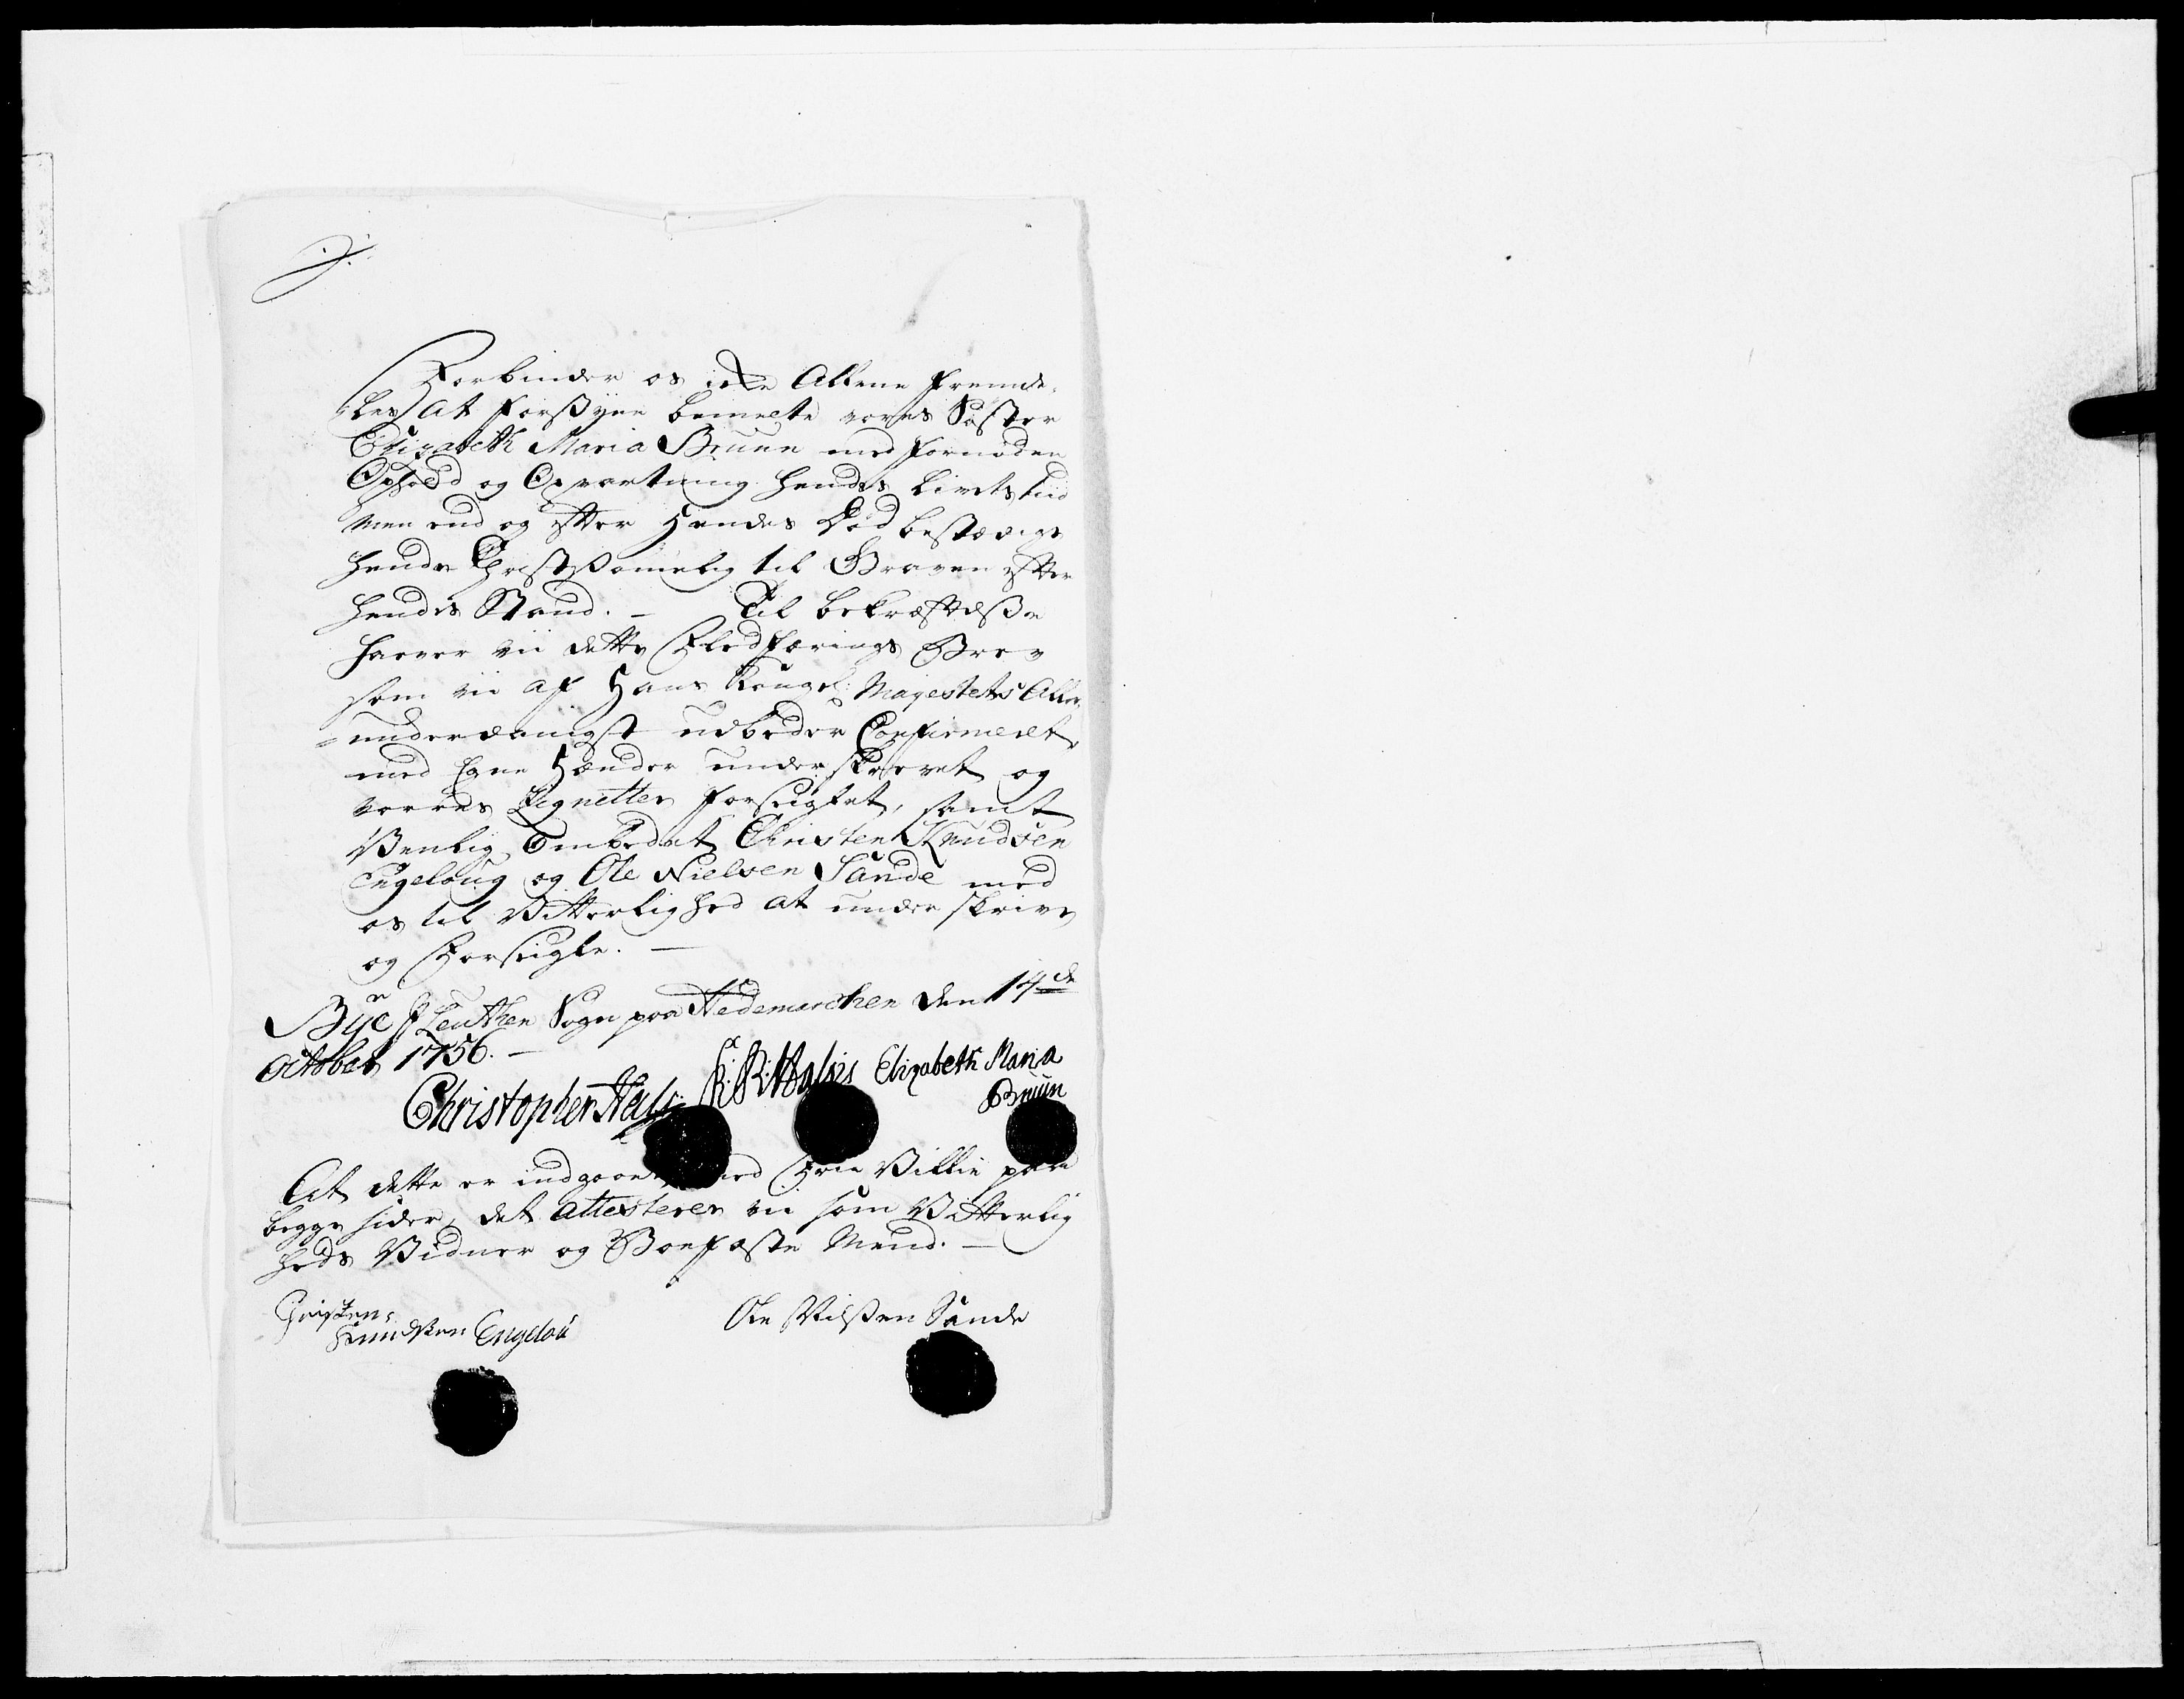 Forbinder os icke Allene fremde-
les At forsyne bemeelte vores Søster
Elizabeth Maria Bruun med fornøden
Ophold og Opvartning hendes Livetstiid
men end og efter Hendes Død bestædige
hende Christsømelig til Graven efter
hendes Stand. — Til bekræftelse
haever vii dette Fledførings Brev
som vii af Hans Kongel: Mayestets Aller-
=underdanigst udbeder Confirmeret,
med Egne Hænder underskrevet og
vorres Zignetter forseiglet, samt
Venlig Ombedet Christen Knudsen
Engeloug og Ole Nielsen Sande med
os til Vitterlighed at underskrive
og Forseigle. —
Bye J Leuthen Sogn paa Hedemarchen den 14de
October 1756. —
Christopher Hals Elizabeth Maria
Bruun
At dette er indgaaet med Frie Villie paa
begge sider, det attesterer vii som Vitterlig
heds Vidner og Boefaste Mend. —
Christen
Knudsen Engelou Ole Nilsen Sande